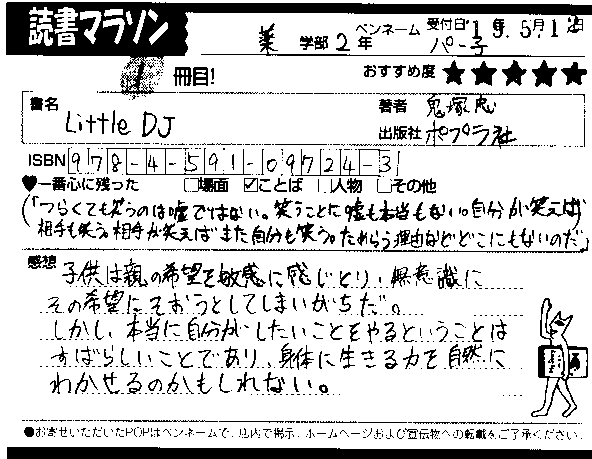 読書マラソン
薬 学部 2 年 ペンネーム パー子 受付日 '19年 5月 1 日
1 冊目! おすすめ度 ★★★★★
書名 Little DJ
著者 鬼塚忠
出版社 ポプラ社
ISBN 978-4-591-09724-3
♥一番心に残った □場面 ☑ことば □人物 □その他
(「つらくても笑うのは嘘ではない。笑うことに嘘も本当もない。自分が笑えば
相手も笑う。相手が笑えばまた自分も笑う。ためらう理由などどこにもないのだ」)
感想 子供は親の希望を敏感に感じとり、無意識に
その希望にそおうとしてしまいがちだ。
しかし、本当に自分がしたいことをやるということは
すばらしいことであり、身体に生きる力を自然に
わかせるのかもしれない。
●お寄せいただいたPOPはペンネームで、店内で掲示、ホームページおよび宣伝物への転載をご了承ください。